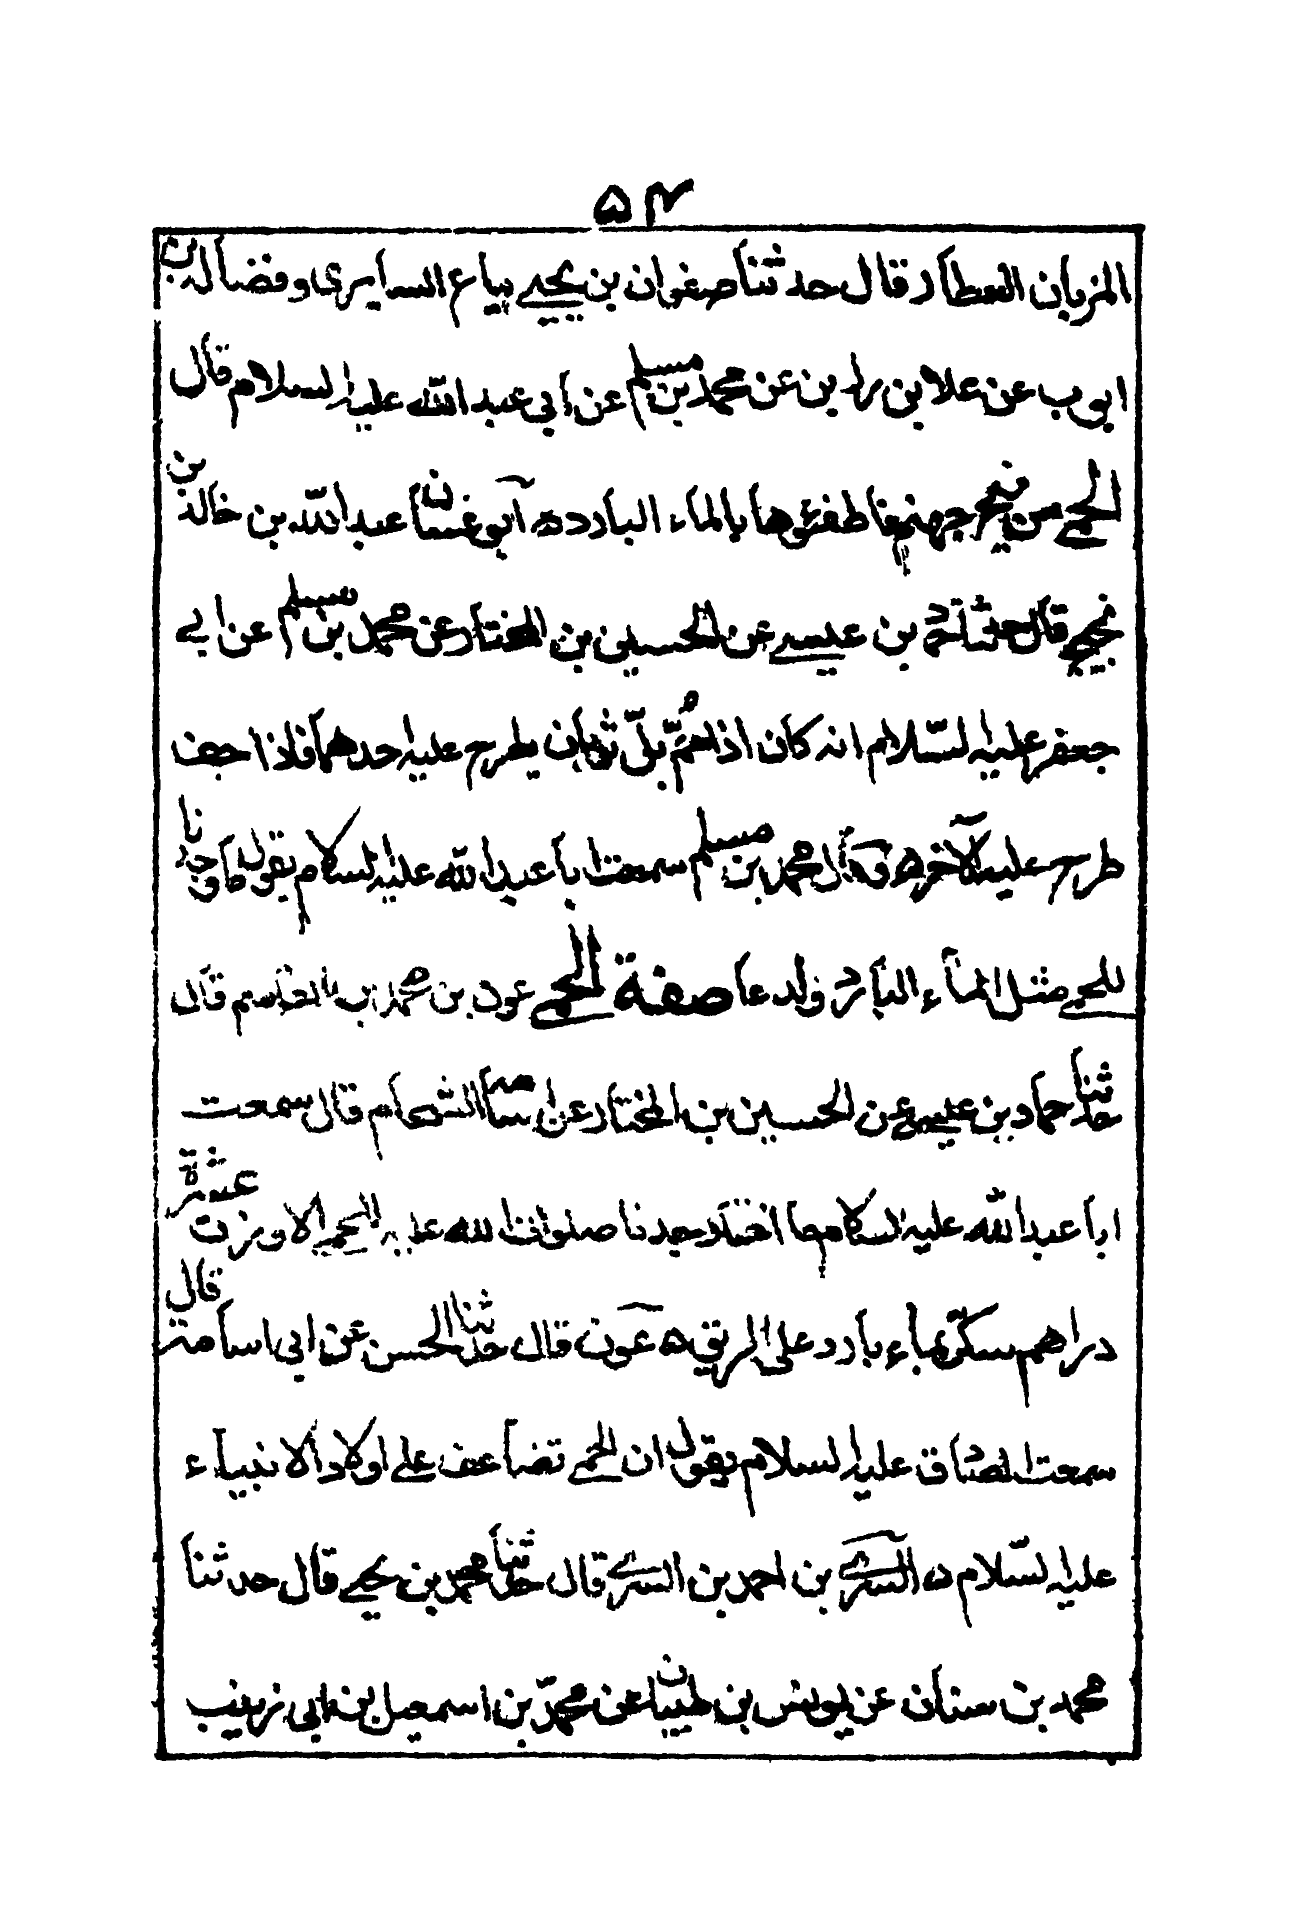 ۵۴
المرزبان العطار قال حدثنا صفوان بن يحيى بياع السابري وفضالة بن
ايوب عن علا بن رزين عن محمد بن مسلم عن ابي عبد الله عليه السلام قال
الحمى من فيح جهنم فاطفئوها بالماء البارد ه ابو غسان عبد الله بن خالد بن
نجيح قال حدثنا حماد بن عيسى عن الحسين بن المختار عن محمد بن مسلم عن ابي
جعفر عليه السّلام انه كان اذا حمّ بلّ ثوبان يطرح عليه احدهما فاذا جف
طرح عليه الآخر ه وقال محمد بن مسلم سمعت ابا عبد الله عليه السلام يقول ما وجدنا
للحمى مثل الماء البارد والدعا صفة الحمى عون بن محمد بن القاسم قال
حدثنا حماد بن عيسى عن الحسين بن المختار عن اسامة الشحام قال سمعت
ابا عبد الله عليه السلام ما اختار جدنا صلوات الله عليه للحمى الا وزن عشرة
دراهم سكّر بماء بارد على الريق ه عون قال حدثنا الحسن عن ابي اسامة
سمعت الصادق عليه السلام يقول ان الحمى تضاعف على اولاد الانبياء
عليه السّلام ه السري بن احمد بن السري قال حدثنا محمد بن يحيى قال حدثنا
محمد بن سنان عن يونس بن ظبيان عن محمّد بن اسمعيل بن ابي زينب